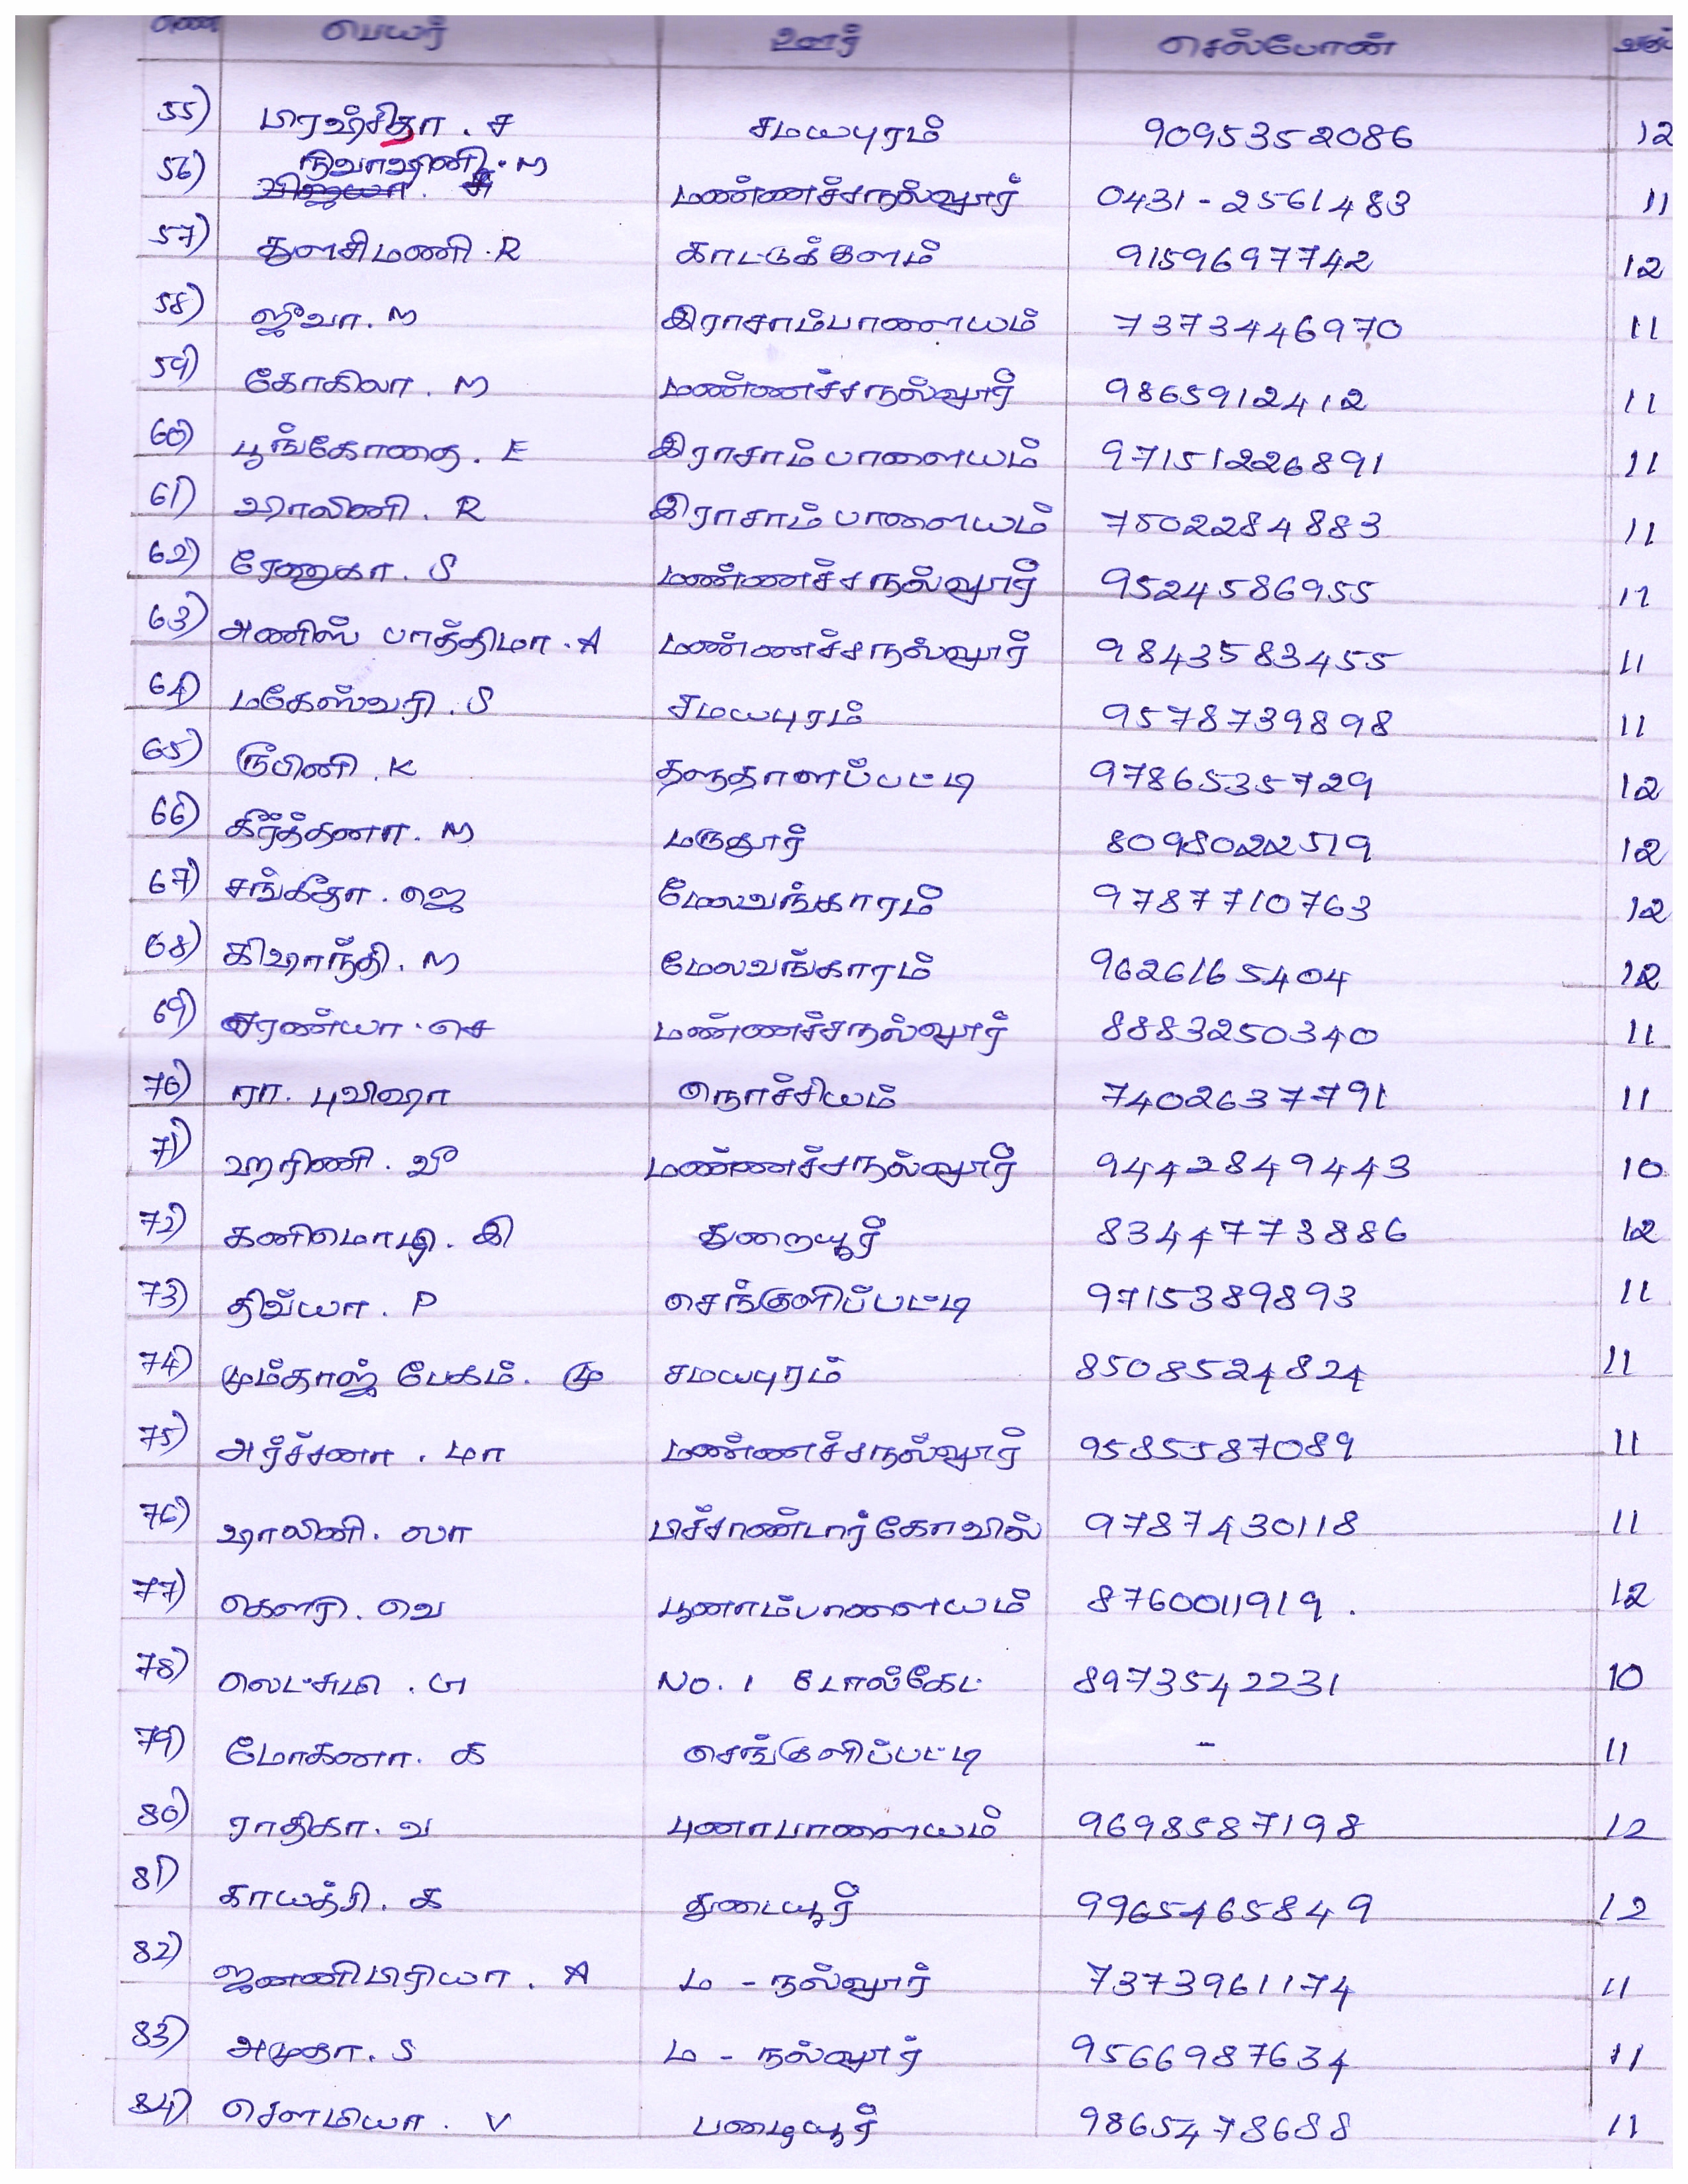 எண் பெயர் ஊர் செல்போன்
55) பிரஷ்சிதா . ச சமயபுரம் 9095352086 12
56) நிவாஷினி . M மண்ணச்சநல்லூர் 0431-2561483 11
57) துளசிமணி . R காட்டுக்குளம் 9159697742 12
58) ஜீவா . M இராசாம்பாளையம் 7373446970 11
59) கோகிலா . M மண்ணச்சநல்லூர் 9865912412 11
60) பூங்கோதை . E இராசாம்பாளையம் 971512226891 11
61) ஷாலினி . R இராசாம்பாளையம் 7502284883 11
62) ரேணுகா . S மண்ணச்சநல்லூர் 9524586955 11
63) அனிஸ் பாத்திமா . A மண்ணச்சநல்லூர் 9843583455 11
64) மகேஸ்வரி . S சமயபுரம் 9578739898 11
65) ரூபினி . K தளுதாளப்பட்டி 9786535729 12
66) கீர்த்தனா . M மருதூர் 8098022519 12
67) சங்கீதா . ஜெ மேலவங்காரம் 9787710763 12
68) கிஷாந்தி . M மேலவங்காரம் 9626165404 12
69) சரண்யா . செ மண்ணச்சநல்லூர் 8883250340 11
70) ரா . புவிஷா நொச்சியம் 7402637791 11
71) ஹரிணி . வீ மண்ணச்சநல்லூர் 9442849443 10
72) கனிமொழி . இ துறையூர் 8344773886 12
73) திவ்யா . P செங்குளிப்பட்டி 9715389893 11
74) மும்தாஜ் பேகம் . மு சமயபுரம் 8508524824 11
75) அர்ச்சனா . மா மண்ணச்சநல்லூர் 9585587089 11
76) ஷாலினி . லா பிச்சாண்டார்கோவில் 9787430118 11
77) கௌரி . வெ பூனாம்பாளையம் 8760011919 . 12
78) லெட்சுமி . G No. 1 டோல்கேட் 8973542231 10
79) மோகனா . க செங்குளிப்பட்டி - 11
80) ராதிகா . வ புனாபாளையம் 9698587198 12
81) காயத்ரி . க துடையூர் 9965465849 12
82) ஜனனிபிரியா . A ம - நல்லூர் 7373961174 11
83) அமுதா . S ம - நல்லூர் 9566987634 11
84) சௌமியா . V பழையூர் 9865478688 11